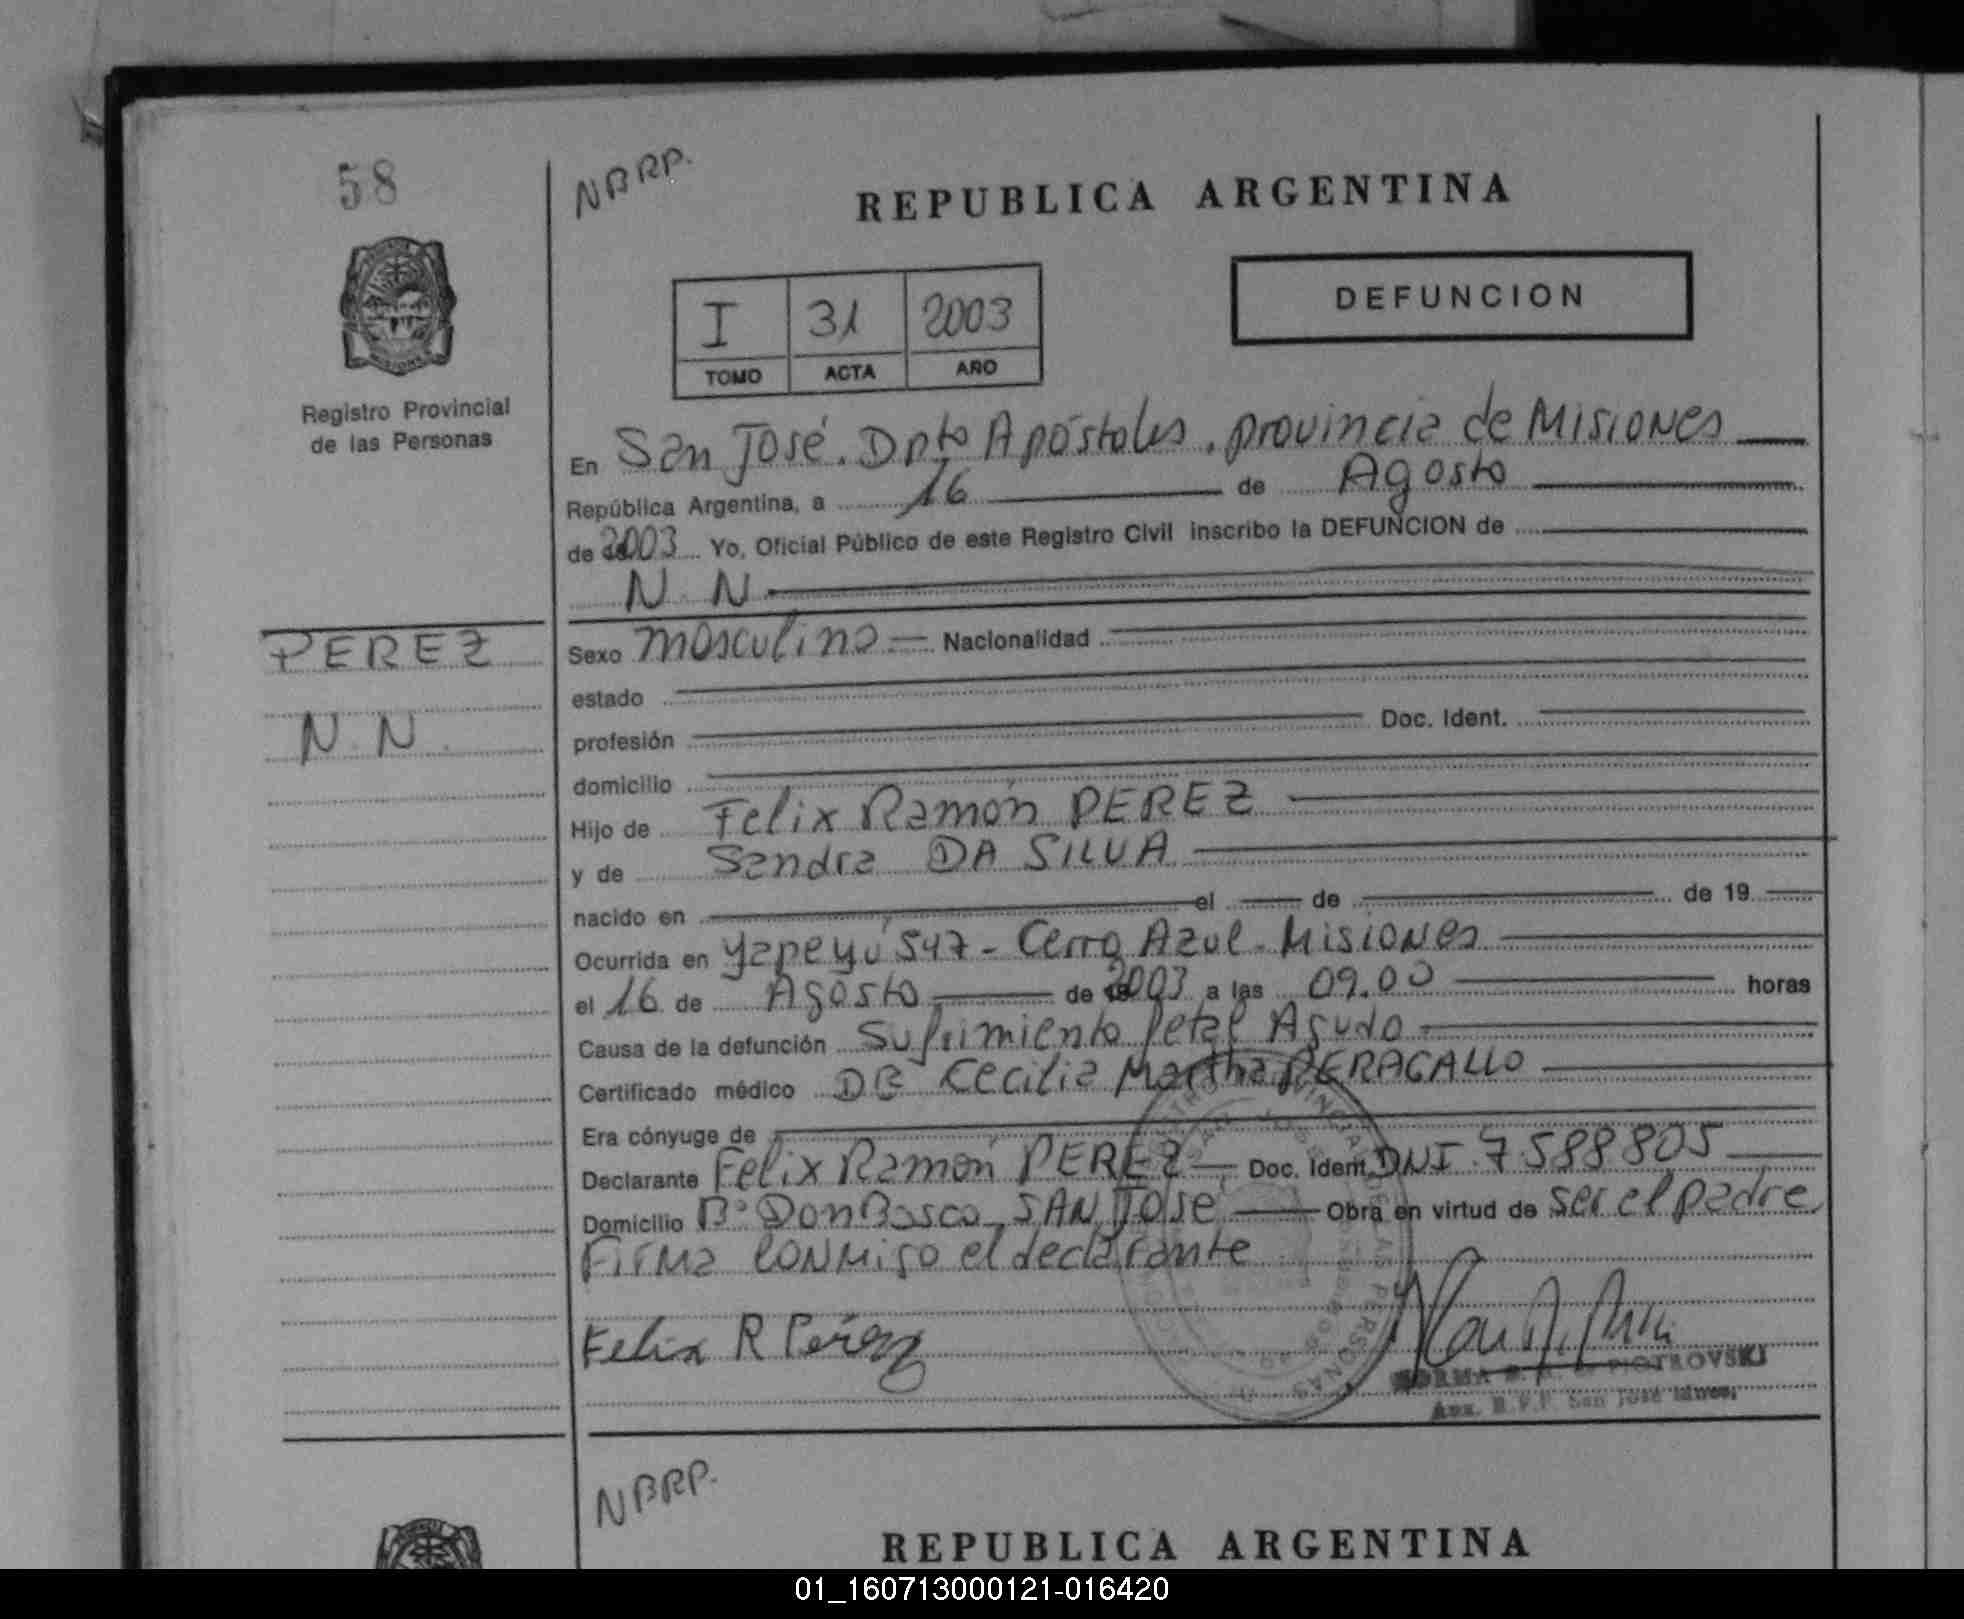 58
NBRP.
REPUBLICA ARGENTINA
DEFUNCION
I 31 2003
TOMO ACTA AÑO
Registro Provincial
de las Personas
En San José. Dpto Apóstoles. provincia de Misiones
República Argentina, a 16 de Agosto
de 2003 Yo, Oficial Público de este Registro Civil inscribo la DEFUNCION de
N. N
PEREZ
N. N.
Sexo masculino Nacionalidad
estado
profesión Doc. Ident.
domicilio
Hijo de Felix Ramón PEREZ
y de Sandra DA SILVA
nacido en el de de 19
Ocurrida en Yapeyú 547 - Cerro Azul - Misiones
el 16 de Agosto de 2003 a las 09.00 horas
Causa de la defunción Sufrimiento fetal Agudo
Certificado médico DR Cecilia Martha PERAGALLO
Era cónyuge de
Declarante Felix Ramón PEREZ Doc. Ident. DNI 7588805
Domicilio Bº Don Bosco, SAN JOSE Obra en virtud de ser el padre
Firma conmigo el declarante
Felix R Pérez
NORMA PIOTROVSKI
Aux. R.P.P. San José
NBRP.
REPUBLICA ARGENTINA
01_160713000121-016420